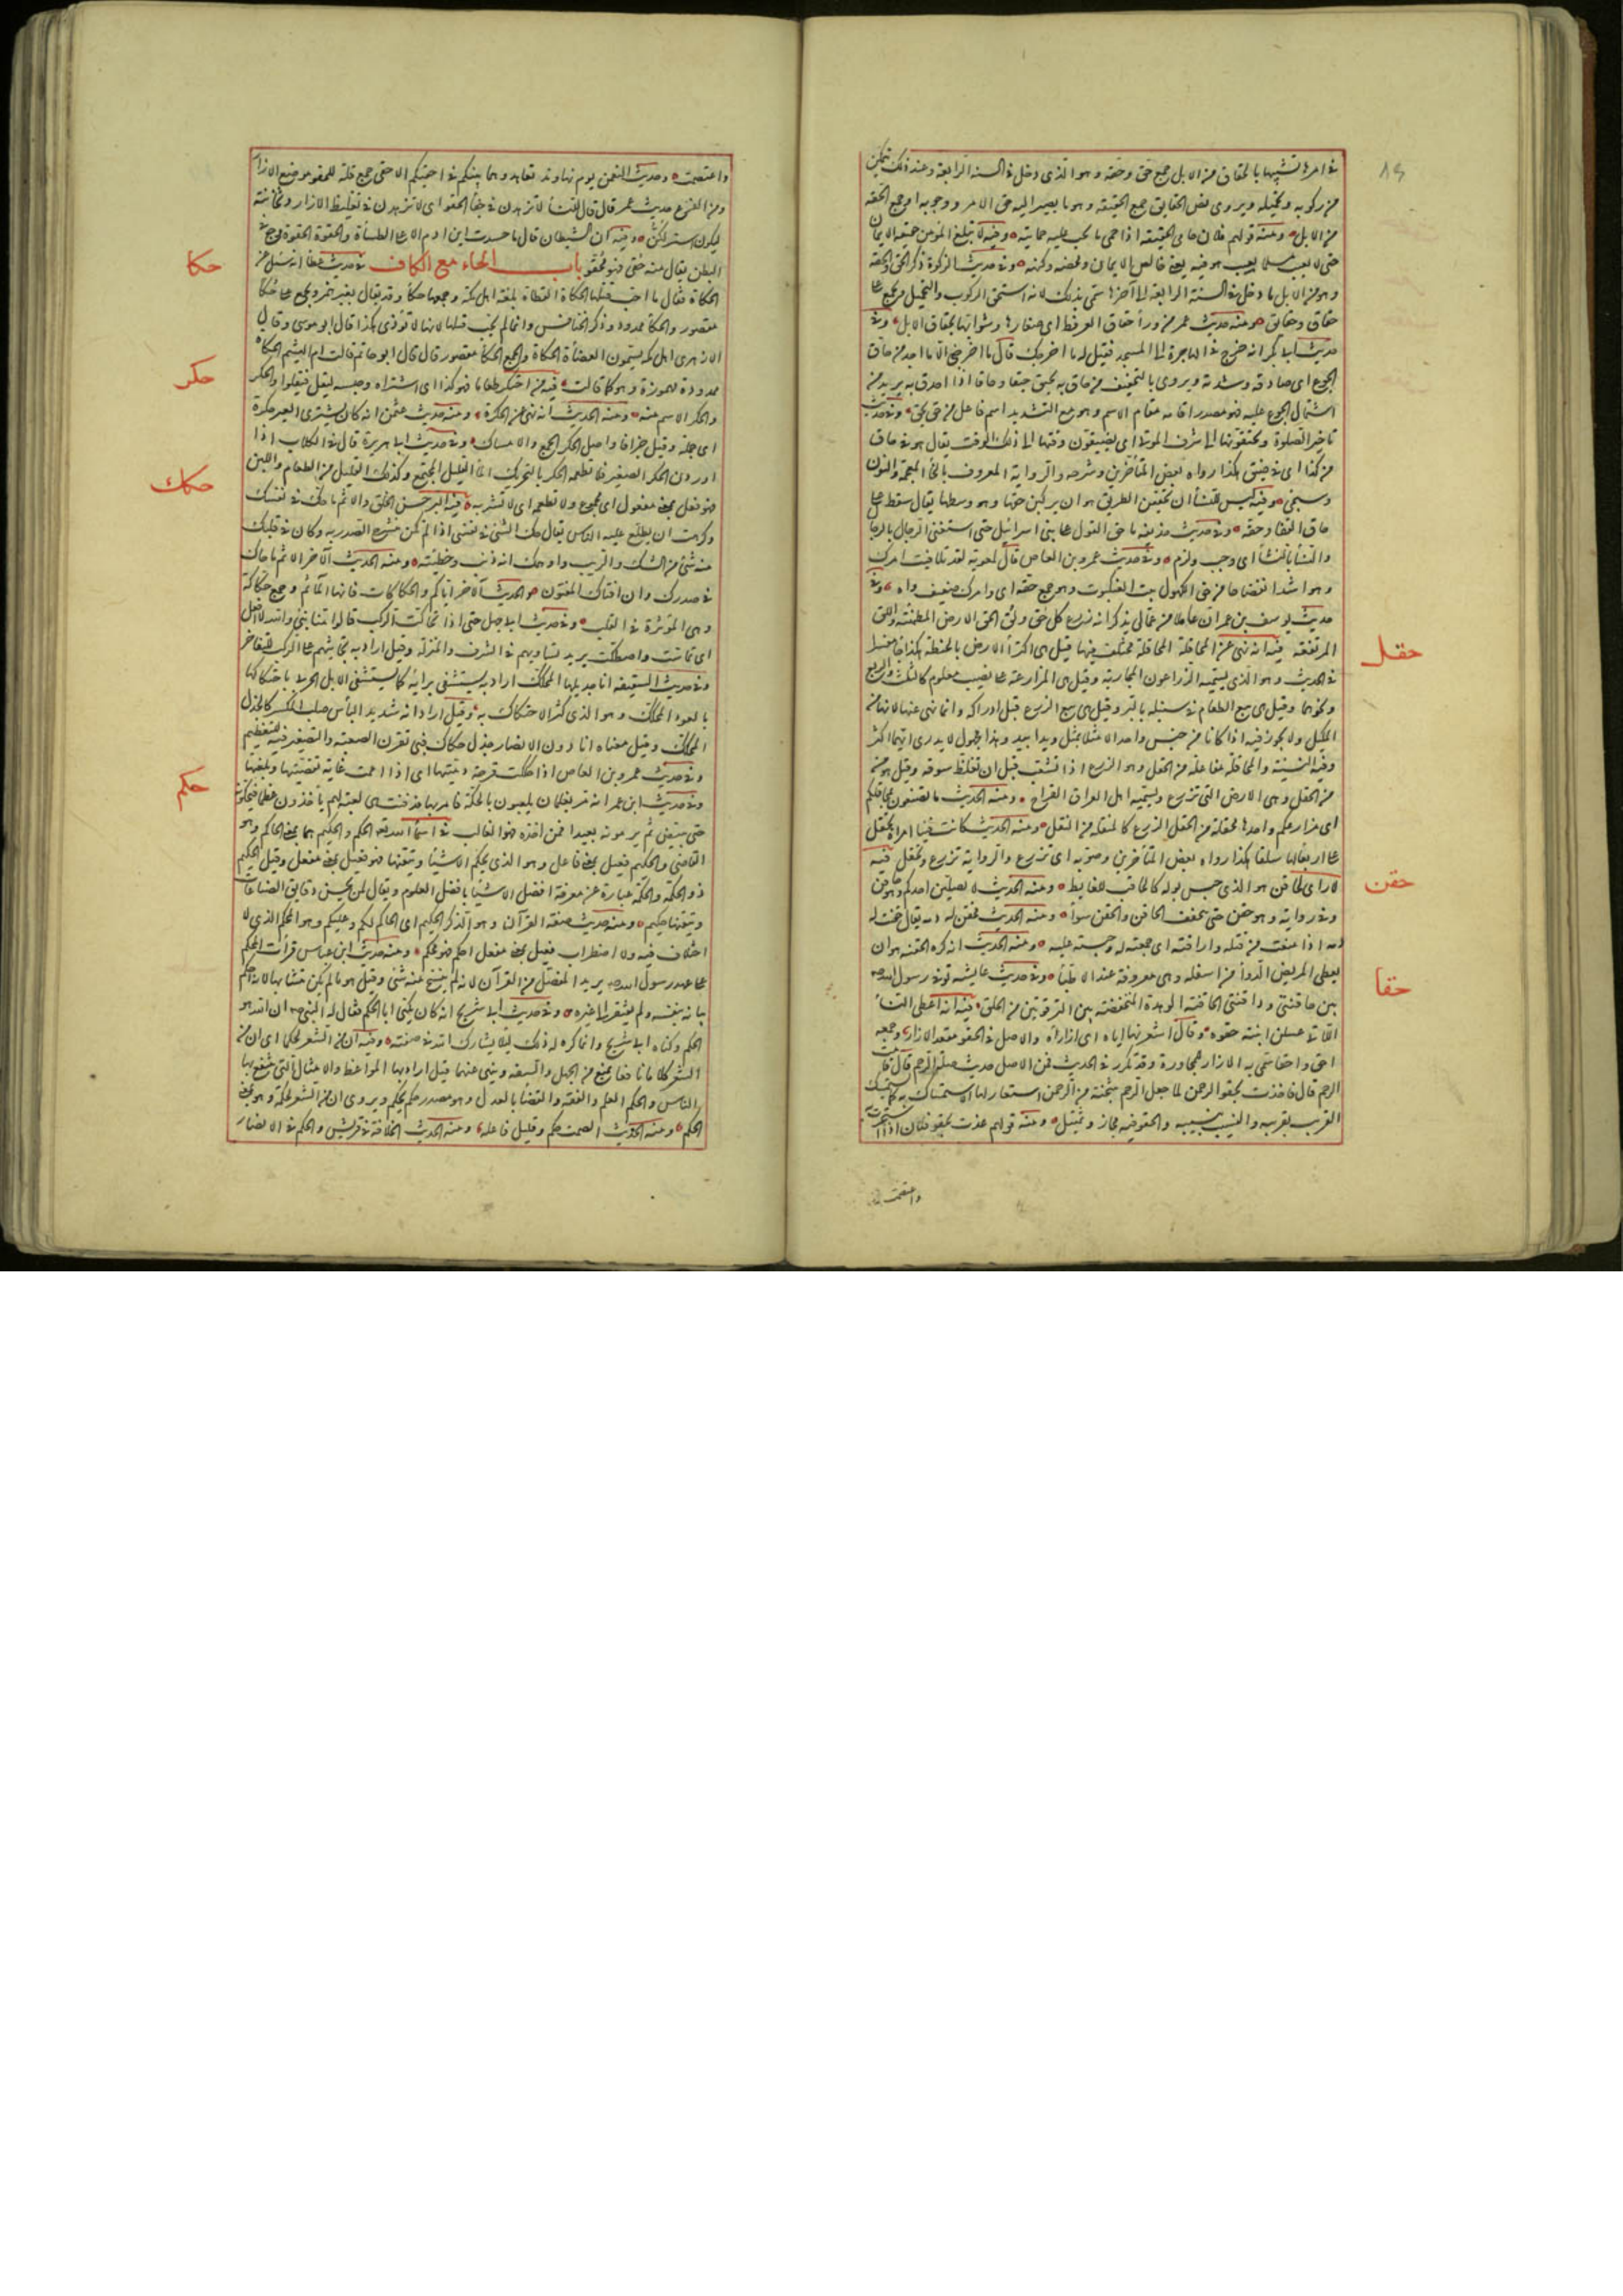 في امرها تشبيها بالحقاق من الابل جمع حق وحقة وهو الذي دخل في السنة الرابعة وعند ذلك يتمكن
من ركوبه وتحميله ويروى نص الحقايق جمع الحقيقة وهو ما يصير اليه حق الامر ووجوبه او جمع الحقة
من الابل ومنه قولهم فلان حامي الحقيقة اذا حمى ما يجب عليه حمايته وفيه لا يبلغ المؤمن حقيقة الايمان
حتى لا يعيب مسلما بعيب هو فيه يعني خالص الايمان ومحضه وكنهه وفي حديث الزكوة ذكر الحق والحقة
وهو من الابل ما دخل في السنة الرابعة الى آخرها سمي بذلك لانه استحق الركوب والتحميل ويجمع على
حقاق وحقايق ومنه حديث عمر من وراء حقاق العرفط اي صغارها وشوابها بحقاق الابل وفي
حديث ابي بكر انه خرج في الهاجرة الى المسجد فقيل له ما اخرجك قال ما اخرجني الا ما اجد من حاق
الجوع اي صادقه وشدته ويروى بالتخفيف من حاق به يحيق حيقا وحاقا اذا احدق به يريد من
اشتمال الجوع عليه فهو مصدر اقامه مقام الاسم وهو مع التشديد اسم فاعل من حق يحق وفي حديث
تاخير الصلوة وتحتقونها الى شرق الموتى اي تضيقون وقتها الى ذلك الوقت يقال هو في حاق
من كذا اي في ضيق هكذا رواه بعض المتأخرين وشرحه والرواية المعروف بالخاء المعجمة والنون
وسيجئ وفيه ليس للنساء ان يحققن الطريق هو ان يركبن حقها وهو وسطها يقال سقط على
حاق القفا وحقه وفي حديث حذيفة ما حق القول على بني اسرائيل حتى استغنى الرجال بالرجال
والنساء بالنساء اي وجب ولزم وفي حديث عمرو بن العاص قال لمعوية لقد تلافيت امرك
وهو اشد انفضاحا من حق الكهول بيت العنكبوت وهو جمع حقة اي وامرك ضعيف واه وفي
حديث يوسف بن عمر ان عاملا من عمالي يذكر انه زرع كل حق ولق الحق الارض المطمئنة واللق
المرتفعة فيه انه نهى عن المحاقلة المحاقلة مختلف فيها قيل هي اكتراء الارض بالحنطة هكذا جاء مفسرا
في الحديث وهو الذي يسميه الزراعون المحارثة وقيل هي المزارعة على نصيب معلوم كالثلث والربع
ونحوهما وقيل هي بيع الطعام في سنبله بالبر وقيل هي بيع الزرع قبل ادراكه وانما نهى عنها لانها من
المكيل ولا يجوز فيه اذا كانا من جنس واحد الا مثلا بمثل ويدا بيد وهذا مجهول لا يدرى ايهما اكثر
وفيه النسيئة والمحاقلة مفاعلة من الحقل وهو الزرع اذا تشعب قبل ان تغلظ سوقه وقيل هو من
من الحقل وهي الارض التي تزرع ويسميه اهل العراق القراح ومنه الحديث ما تصنعون بمحاقلكم
اي مزارعكم واحدها محقلة من الحقل الزرع كالمبقلة من البقل ومنه الحديث كانت فينا امرأة تحقل
على اربعاء لها سلقا هكذا رواه بعض المتأخرين وصوبه اي تزرع والرواية تزرع وتحقل فيه
لا راي لحاقن هو الذي حبس بوله كالحاقب للغايط ومنه الحديث لا يصلين احدكم وهو حاقن
وفي رواية وهو حقن حتى يتخفف الحاقن والحقن سواء ومنه الحديث فحقن له دمه يقال حقنت له
دمه اذا منعت من قتله واراقته اي جمعته له وحبسته عليه ومنه الحديث انه كره الحقنة هو ان
يعطى المريض الدواء من اسفله وهي معروفة عند الاطباء وفي حديث عايشة توفي رسول الله
بين حاقنتي وذاقنتي الحاقنة الوهدة المنخفضة بين الترقوتين من الحلق فيه انه اعطى النساء
اللاتي غسلن ابنته حقوه وقال اشعرنها اياه اي ازاره والاصل في الحقو معقد الازار وجمعه
احق واحقاء سمي به الازار للمجاورة وقد تكرر في الحديث فمن الاصل حديث صلة الرحم قال قامت
الرحم قال فاخذت بحقو الرحمن لما جعل الرحم شجنة من الرحمن استعار لها الاستمساك به كما يستمسك
القريب بقريبه والنسيب بنسيبه والحقو فيه مجاز وتمثيل ومنه قولهم عذت بحقو فلان اذا استجرت به
واعتصمت
حقل
حقن
حقا
واعتصمت وحديث النعمن يوم نهاوند تعاهدوا هماينكم في احقيكم الاحقي جمع قلة للحقو موضع الازار
ومن الفرع حديث عمر قال قال للنساء لا تزهدن في جفاء الحقو اي لا تزهدن في تغليظ الازار وثخانته
ليكون استر لكن وفيه ان الشيطان قال ما حسدت ابن ادم الا على الطسأة والحقوة الحقوة وجع في
البطن يقال منه حقي فهو محقو باب الحاء مع الكاف في حديث عطاء انه سئل عن
الحكأة فقال ما احب قتلها الحكأة العظاة بلغة اهل مكة وجمعها حكاء وقد يقال بغير همز ويجمع على حكا
مقصور والحكاء ممدود ذكر الخنافس وانما لم يحب قتلها لانها لا تؤذي هكذا قال ابو موسى وقال
الازهري اهل مكة يسمون العظاءة الحكأة والجمع الحكأ مقصور قال قال ابو حاتم قالت ام الهيثم الحكاءة
ممدودة مهموزة وهو كما قالت فيه من احتكر طعاما فهو كذا اي اشتراه وحبسه ليقل فيغلو والحكر
والحكرة الاسم منه ومنه الحديث انه نهى عن الحكرة ومنه حديث عثمن انه كان يشتري العير حكرة
اي جملة وقيل جزافا واصل الحكر الجمع والامساك وفي حديث ابي هريرة قال في الكلاب اذا
اوردن الحكر الصغير فلا تطعمه الحكر بالتحريك الماء القليل المجتمع وكذلك القليل من الطعام واللبن
فهو فعل بمعنى مفعول اي مجموع ولا تطعمه اي لا تشربه فيه البر حسن الخلق والاثم ما حك في نفسك
وكرهت ان يطلع عليه الناس يقال حك الشئ في نفسي اذا لم تكن منشرح الصدر به وكان في قلبك
منه شئ من الشك والريب واوهمك انه ذنب وخطيئة ومنه الحديث الآخر الاثم ما حاك
في صدرك وان افتاك المفتون والحديث الآخر اياكم والحكاكات فانها المآثم وجمع حكاكة
وهي المؤثرة في القلب وفي حديث ابي جهل حتى اذا تحاكت الركب قالوا منا نبي والله لا افعل
اي تماست واصطكت يريد تساويهم في الشرف والمنزلة وقيل اراد به تجاثيهم على الركب للتفاخر
وفي حديث السقيفة انا جذيلها المحكك اراد به يستشفى برأيه كما يستشفي الابل الجربى باحتكاكها
بالعود المحكك وهو الذي كثر الاحتكاك به وقيل اراد انه شديد البأس صلب المكسر كالجذل
المحكك وقيل معناه انا دون الانصار جذل حكاك فبي تقرن الصعبة والتصغير فيه للتعظيم
وفي حديث عمرو بن العاص اذا حككت قرحة دميتها اي اذا اممت غاية تقصيتها وبلغتها
وفي حديث ابن عمر انه مر بغلمان يلعبون بالحكة فامر بها فدفنت هي لعبة لهم يأخذون عظما فيحكونه
حتى يبيض ثم يرمونه بعيدا فمن اخذه فهو الغالب في اسماء الله تعالى الحكم والحكيم هما بمعنى الحاكم وهو
القاضي والحكيم فعيل بمعنى فاعل وهو الذي يحكم الاشياء ويتقنها فهو فعيل بمعنى مفعل وقيل الحكيم
ذو الحكمة والحكمة عبارة عن معرفة افضل الاشياء بافضل العلوم ويقال لمن يحسن دقايق الصناعات
ويتقنها حكيم ومنه حديث صفة القرآن وهو الذكر الحكيم اي الحاكم لكم وعليكم وهو المحكم الذي لا
اختلاف فيه ولا اضطراب فعيل بمعنى مفعل احكم فهو محكم ومنه حديث ابن عباس قرأت المحكم
على عهد رسول الله يريد المفصل من القرآن لانه لم ينسخ منه شئ وقيل هو ما لم يكن متشابها لانه احكم
بيانه بنفسه ولم يفتقر الى غيره وفي حديث ابي شريح انه كان يكنى ابا الحكم فقال له النبي ان الله هو
الحكم وكناه ابا شريح وانما كره له ذلك ليلا يشارك الله في صفته وفيه ان من الشعر لحكما اي ان من
الشعر كلاما نافعا يمنع من الجهل والسفه وينهى عنهما قيل اراد بها المواعظ والامثال التي ينتفع بها
الناس والحكم العلم والفقه والقضاء بالعدل وهو مصدر حكم يحكم ويروى ان من الشعر لحكمة وهو بمعنى
الحكم ومنه الحديث الصمت حكم وقليل فاعله ومنه الحديث الخلافة في قريش والحكم في الانصار
حكا
حكر
حكك
حكم